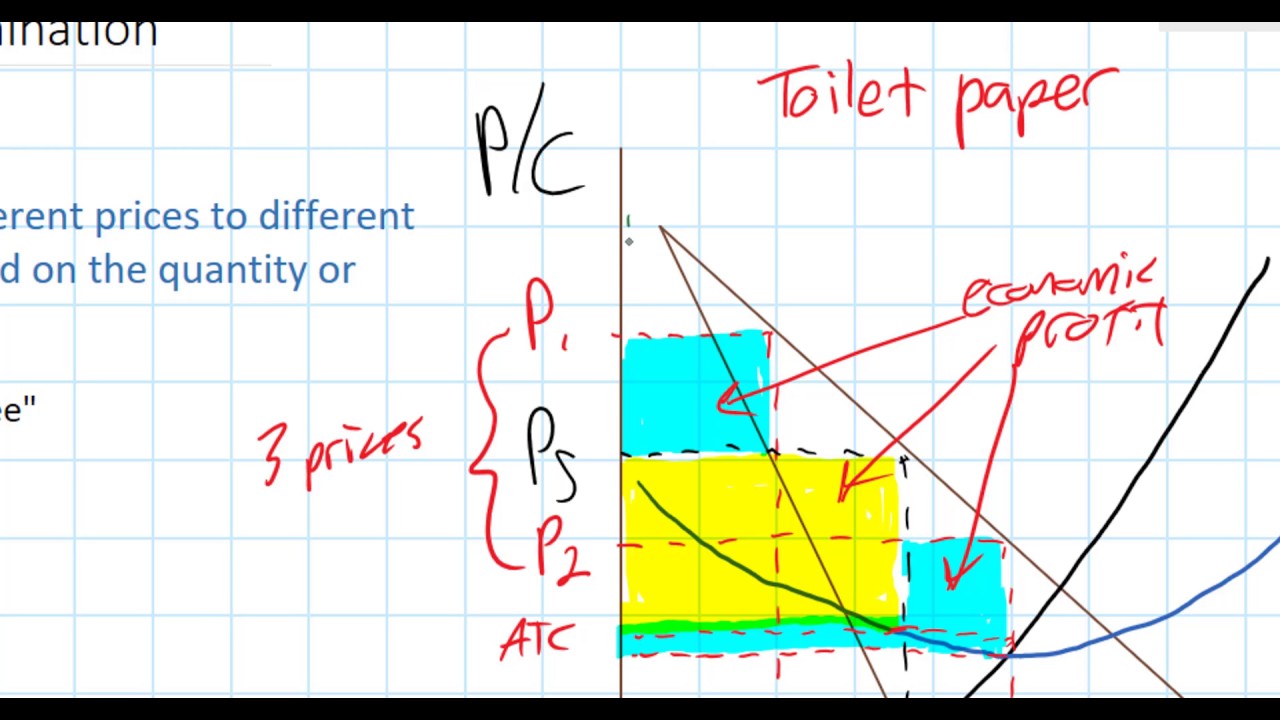 ination
Toilet paper
P/C
erent prices to different
d on the quantity or
economic
profit
P1
ee"
3 prices
Ps
P2
ATC